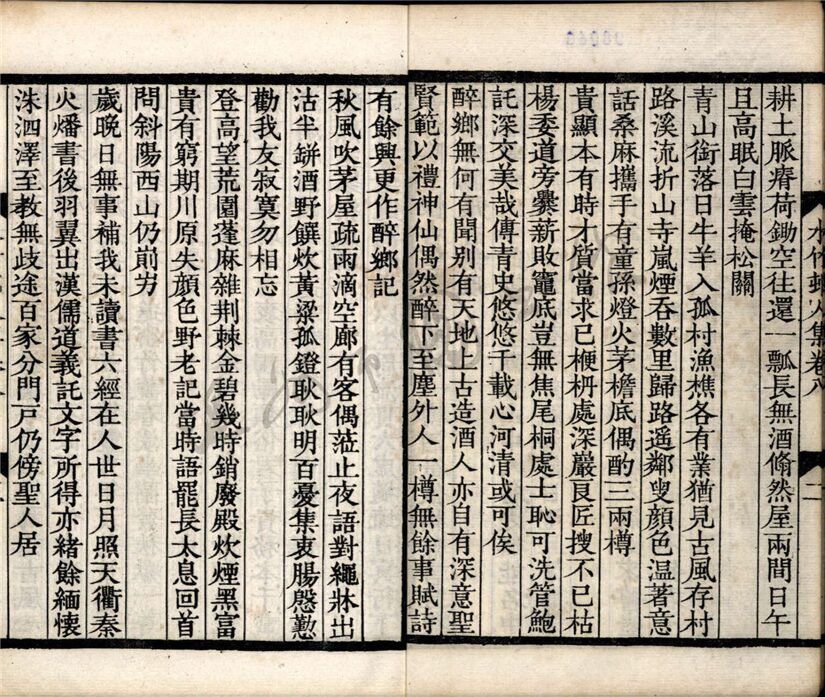 水竹邨人集卷八
耕土脈瘠荷鋤空往還一瓢長無酒翛然屋兩間日午
且高眠白雲掩松關
青山銜落日牛羊入孤村漁樵各有業猶見古風存村
路溪流折山寺嵐煙吞數里歸路遥鄰叟顏色温著意
話桑麻攜手有童孫燈火茅檐底偶酌三兩樽
貴顯本有時才質當求己楩枬處深巖良匠搜不已枯
楊委道旁爨薪敗竈底豈無焦尾桐處士恥可洗管鮑
託深交美哉傳青史悠悠千載心河清或可俟
醉鄉無何有聞别有天地上古造酒人亦自有深意聖
賢範以禮神仙偶然醉下至塵外人一樽無餘事賦詩
有餘興更作醉鄉記
秋風吹茅屋疏雨滴空廊有客偶蒞止夜語對繩牀出
沽半缾酒野饌炊黃粱孤鐙耿耿明百憂集衷腸慇懃
勸我友寂寞勿相忘
登高望荒園蓬麻雜荆棘金碧幾時銷廢殿炊煙黑富
貴有窮期川原失顏色野老記當時語罷長太息回首
問斜陽西山仍前屴
歲晚日無事補我未讀書六經在人世日月照天衢秦
火燔書後羽翼出漢儒道義託文字所得亦緒餘緬懷
洙泗澤至教無歧途百家分門戸仍傍聖人居